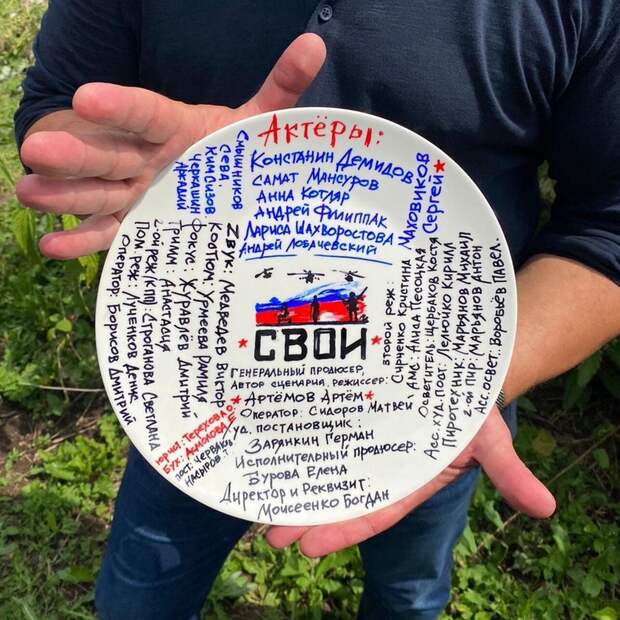 Актёры:
Константин Демидов
Самат Мансуров
Анна Котляр
Андрей Филиппак
Лариса Шахворостова
Андрей Лобачевский
Маховиков
Сергей
Смышников
Сева.
Ким Сизов
Черкашин
Аркадий
СВОИ
Генеральный продюсер,
Автор сценария, режиссер:
Артёмов Артём
Оператор: Сидоров Матвей
Худ. постановщик:
Заранкин Герман
Исполнительный продюсер:
Бурова Елена
Директор и Реквизит:
Моисеенко Богдан
Звук: Медведев Виктор
Костюм: Урмеева Рамиля
Фокус: Журавлёв Дмитрий
Грим: Анастасия
2-ой реж (КПП): Строганова Светлана
Пом. реж: Лученков Денис
Оператор: Борисов Дмитрий
Юрист: Терехов
Бух: Асмолова Е
Насыров
второй реж:
Сирченко Кристина
Адм: Алиса Песоцкая
Осветитель: Щербаков Костя
Асс-худ.пост: Лелючко Кирилл
Пиротехник: Марьянов Михаил
2-ой пир: Марьянов Антон
Асс.освет: Воробьёв Павел.